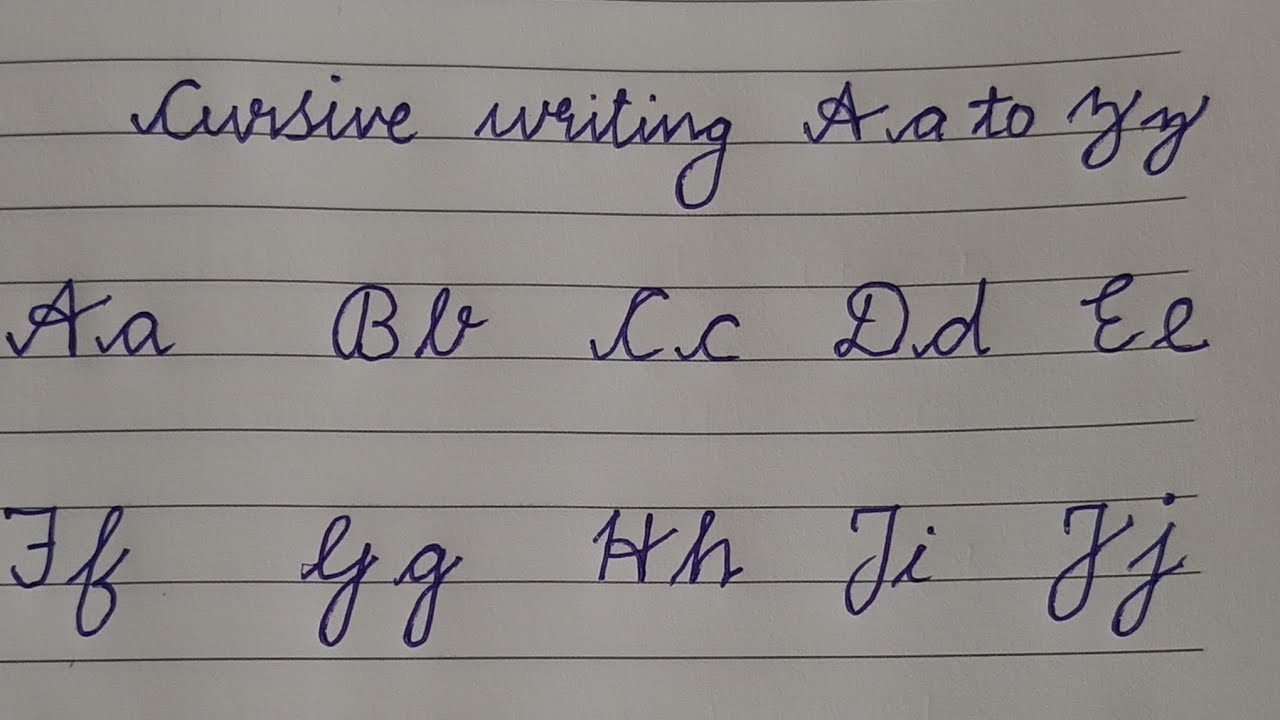 Cursive writing Aa to Zz
Aa Bb Cc Dd Ee
Ff Gg Hh Ii Jj